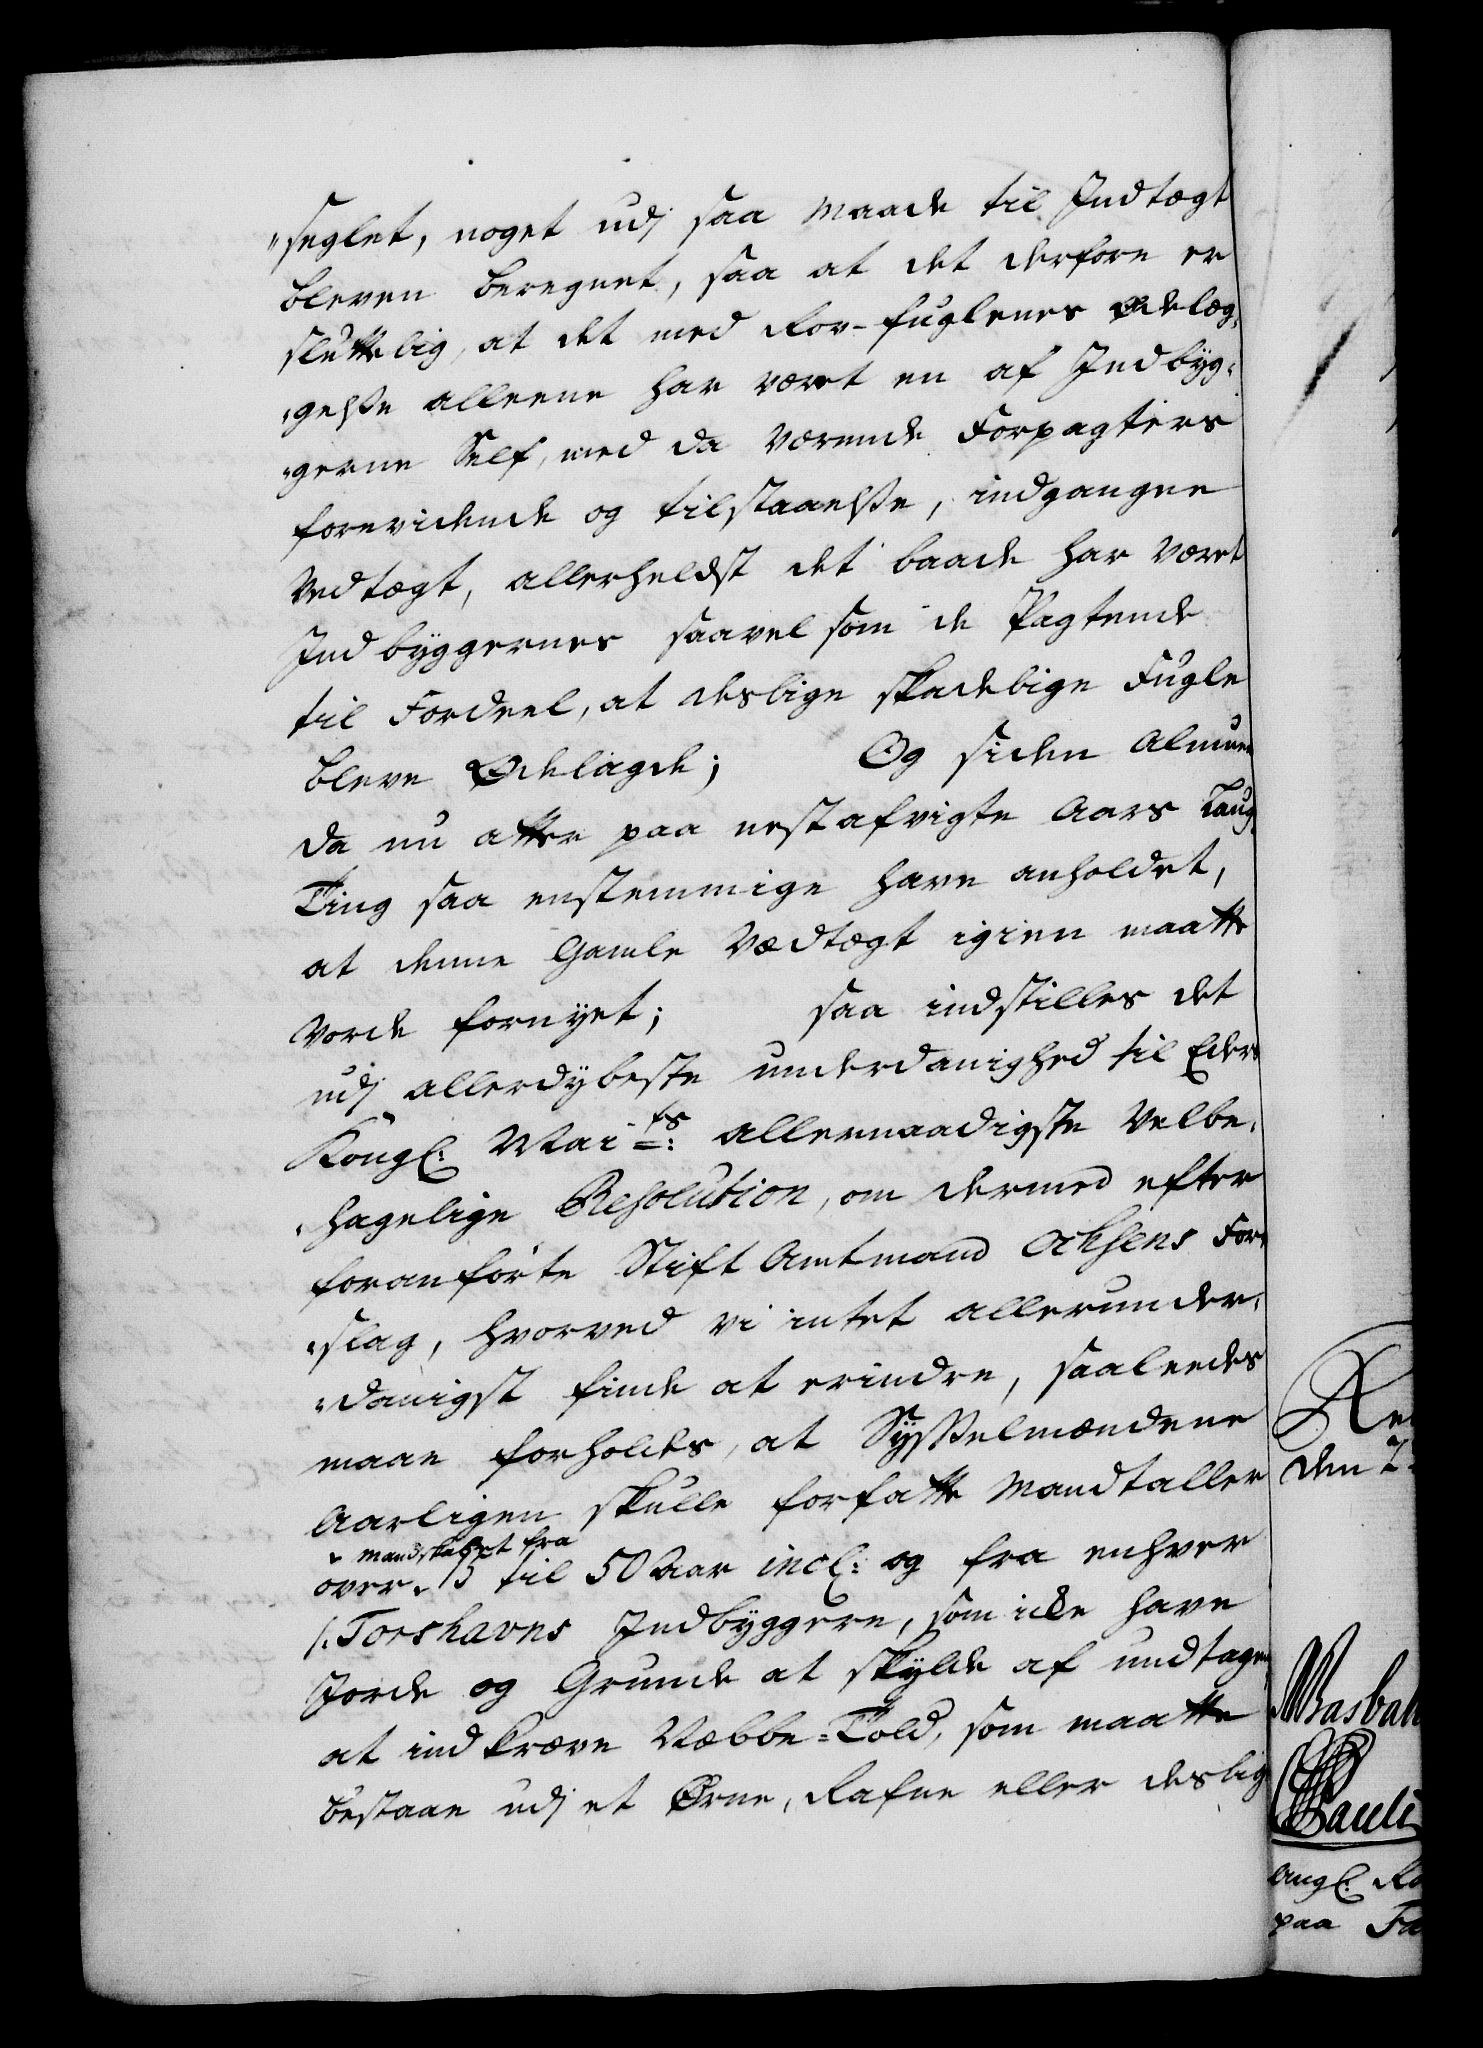 "seglet, noget udj saa maade til Indtægt
bleven beregnet, saa at det derfore er
sluttelig, at det med Rov-fuglenes ødelæg-
"gelsse alleene har været en af Indbyg-
"gerne Self, med da værende Forpagters
forevidende og tilstaaelsse, indgangne
Vedtægt, allerheldst det baade har været
Indbyggernes saavel som de Pagtende
til Fordeel, at deslige skadelige Fugle
bleve Ødelagde; Og siden Almuen
da nu atter paa nestafvigte Aars Laug-
Ting saa enstemmige have anholdet,
at denne Gamle Vedtægt igien maatte
vorde fornyet; saa indstilles det
udj allerdybeste underdanighed til Eders
Kongl: Mai ts: allernaadigste Velbe-
"hagelige Resolution, om dermed efter
foranførte Stift Amtmand Acksens For-
"slag, hvorved vi intet allerunder-
"danigst finde at erindre, saaleedes
maae forholdes, at Sysselmændene
Aarligen skulle forfatte Mandtaller
mandskabet fra
over 15 til 50 Aar incl: og fra enhver
/: Torshavns Indbyggere, som icke have
Jorde og Grunde at skylde af undtagen
at indkræve Næbbe-Told, som maatte
bestaae udj et Ørne, Rafne eller deslig
den 2
Masbak
Pauli
angl: Ro
paa Fa